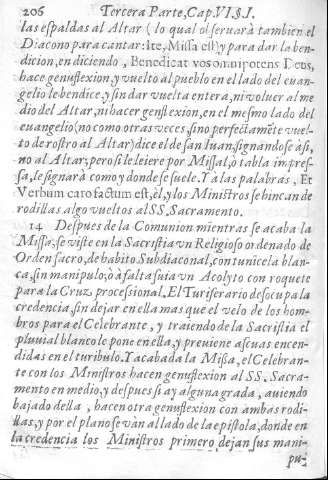 206 Tercera Parte, Cap. VI. §. I.
las espaldas al Altar (lo qual obseruarà tambien el
Diacono para cantar: Ite, Missa est) y para dar la ben-
dicion, en diciendo, Benedicat vos omnipotens Deus,
hace genuflexion, y vuelto al pueblo en el lado del euan-
gelio le bendice, y sin dar vuelta entera, ni voluer al me
dio del Altar, ni hacer genflexion, en el mesmo lado del
euangelio (no como otras veces, sino perfectamẽte vuel-
to de rostro al Altar) dice el de san Iuan, signandose àsi,
no al Altar, pero si le leiere por Missal, ò tabla impres-
sa, le signarà como y donde se suele. Y a las palabras, Et
Verbum caro factum est, èl, y los Ministros se hincan de
rodillas algo vueltos al SS. Sacramento.
14 Despues de la Comunion mientras se acaba la
Missa, se viste en la Sacristia vn Religioso ordenado de
Orden sacro, de habito Subdiaconal, con tunicela blan-
ca, sin manipulo; ò à falta suia vn Acolyto con roquete
para la Cruz processional. El Turiferario desocupa la
credencia, sin dejar en ella mas que el velo de los hom-
bros para el Celebrante, y traiendo de la Sacristia el
pluuial blanco le pone en ella, y preuiene ascuas encen-
didas en el turibulo. Y acabada la Missa, el Celebran-
te con los Ministros hacen genuflexion al SS. Sacra-
mento en medio, y despues si ay alguna grada, auiendo
bajado della, hacen otra genuflexion con ambas rodi-
llas, y por el plano se vàn al lado de la epistola, donde en
la credencia los Ministros primero dejan sus mani-
pu-